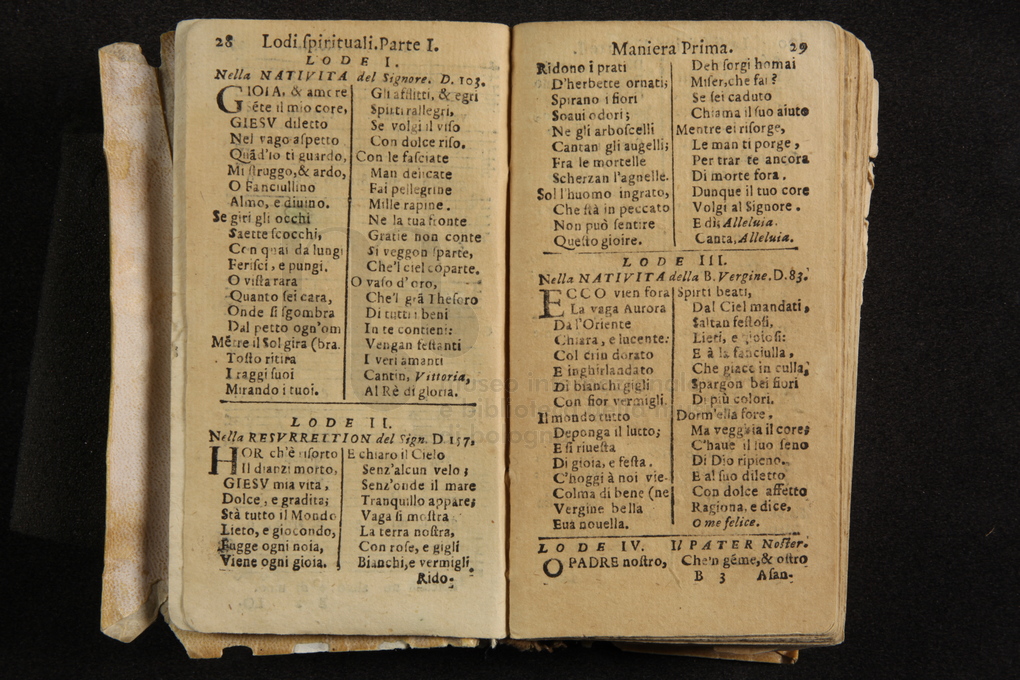 28 Lodi ſpirituali. Parte I.
LODE I.
Nella NATIVITA del Signore. D. 103.
GIOIA, & amore
Sẽte il mio core,
GIESV diletto
Nel vago aſpetto
Quãd'io ti guardo,
Mi ſtruggo, & ardo,
O Fanciullino
Almo, e diuino.
Se giri gli occhi
Saette ſcocchi,
Con quai da lungi
Feriſci, e pungi.
O viſta rara
Quanto ſei cara,
Onde ſi ſgombra
Dal petto ogn'om
Mẽtre il Sol gira (bra.
Toſto ritira
I raggi ſuoi
Mirando i tuoi.
Gli afflitti, & egri
Spirti rallegri,
Se volgi il viſo
Con dolce riſo.
Con le faſciate
Man delicate
Fai pellegrine
Mille rapine.
Ne la tua fronte
Gratie non conte
Si veggon ſparte,
Che'l ciel coparte.
O vaſo d'oro,
Che'l grã Theſoro
Di tutti i beni
In te contieni:
Vengan feſtanti
I veri amanti
Cantin, Vittoria,
Al Rè di gloria.
LODE II.
Nella RESVRRETTION del Sign. D 157.
HOR ch'è riſorto
Il dianzi morto,
GIESV mia vita,
Dolce, e gradita;
Stà tutto il Mondo
Lieto, e giocondo,
Fugge ogni noia,
Viene ogni gioia.
E chiaro il Cielo
Senz'alcun velo;
Senz'onde il mare
Tranquillo appare;
Vaga ſi moſtra
La terra noſtra,
Con roſe, e gigli
Bianchi, e vermigli
Rido-
Maniera Prima. 29
Ridono i prati
D'herbette ornati;
Spirano i fiori
Soaui odori;
Ne gli arboſcelli
Cantan gli augelli;
Fra le mortelle
Scherzan l'agnelle.
Sol l'huomo ingrato,
Che ſtà in peccato
Non può ſentire
Queſto gioire.
Deh ſorgi homai
Miſer, che fai?
Se ſei caduto
Chiama il ſuo aiuto
Mentre ei riſorge,
Le man ti porge,
Per trar te ancora
Di morte fora.
Dunque il tuo core
Volgi al Signore.
E di, Alleluia.
Canta, Alleluia.
LODE III.
Nella NATIVITA della B. Vergine. D. 83.
ECCO vien fora
La vaga Aurora
Da l'Oriente
Chiara, e lucente:
Col crin dorato
E inghirlandato
Di bianchi gigli
Con fior vermigli.
Il mondo tutto
Deponga il lutto;
E ſi riueſta
Di gioia, e feſta.
C'hoggi à noi vie-
Colma di bene (ne
Vergine bella
Eua nouella.
Spirti beati,
Dal Ciel mandati,
Saltan feſtoſi,
Lieti, e gioioſi:
E à la fanciulla,
Che giace in culla,
Spargon bei fiori
Di più colori.
Dorm'ella fore,
Ma vegghia il core;
C'haue il ſuo ſeno
Di Dio ripieno.
E al ſuo diletto
Con dolce affetto
Ragiona, e dice,
O me felice.
LODE IV. Il PATER Noſter.
O PADRE noſtro,
Che'n gẽme, & oſtro
B 3 Aſan-